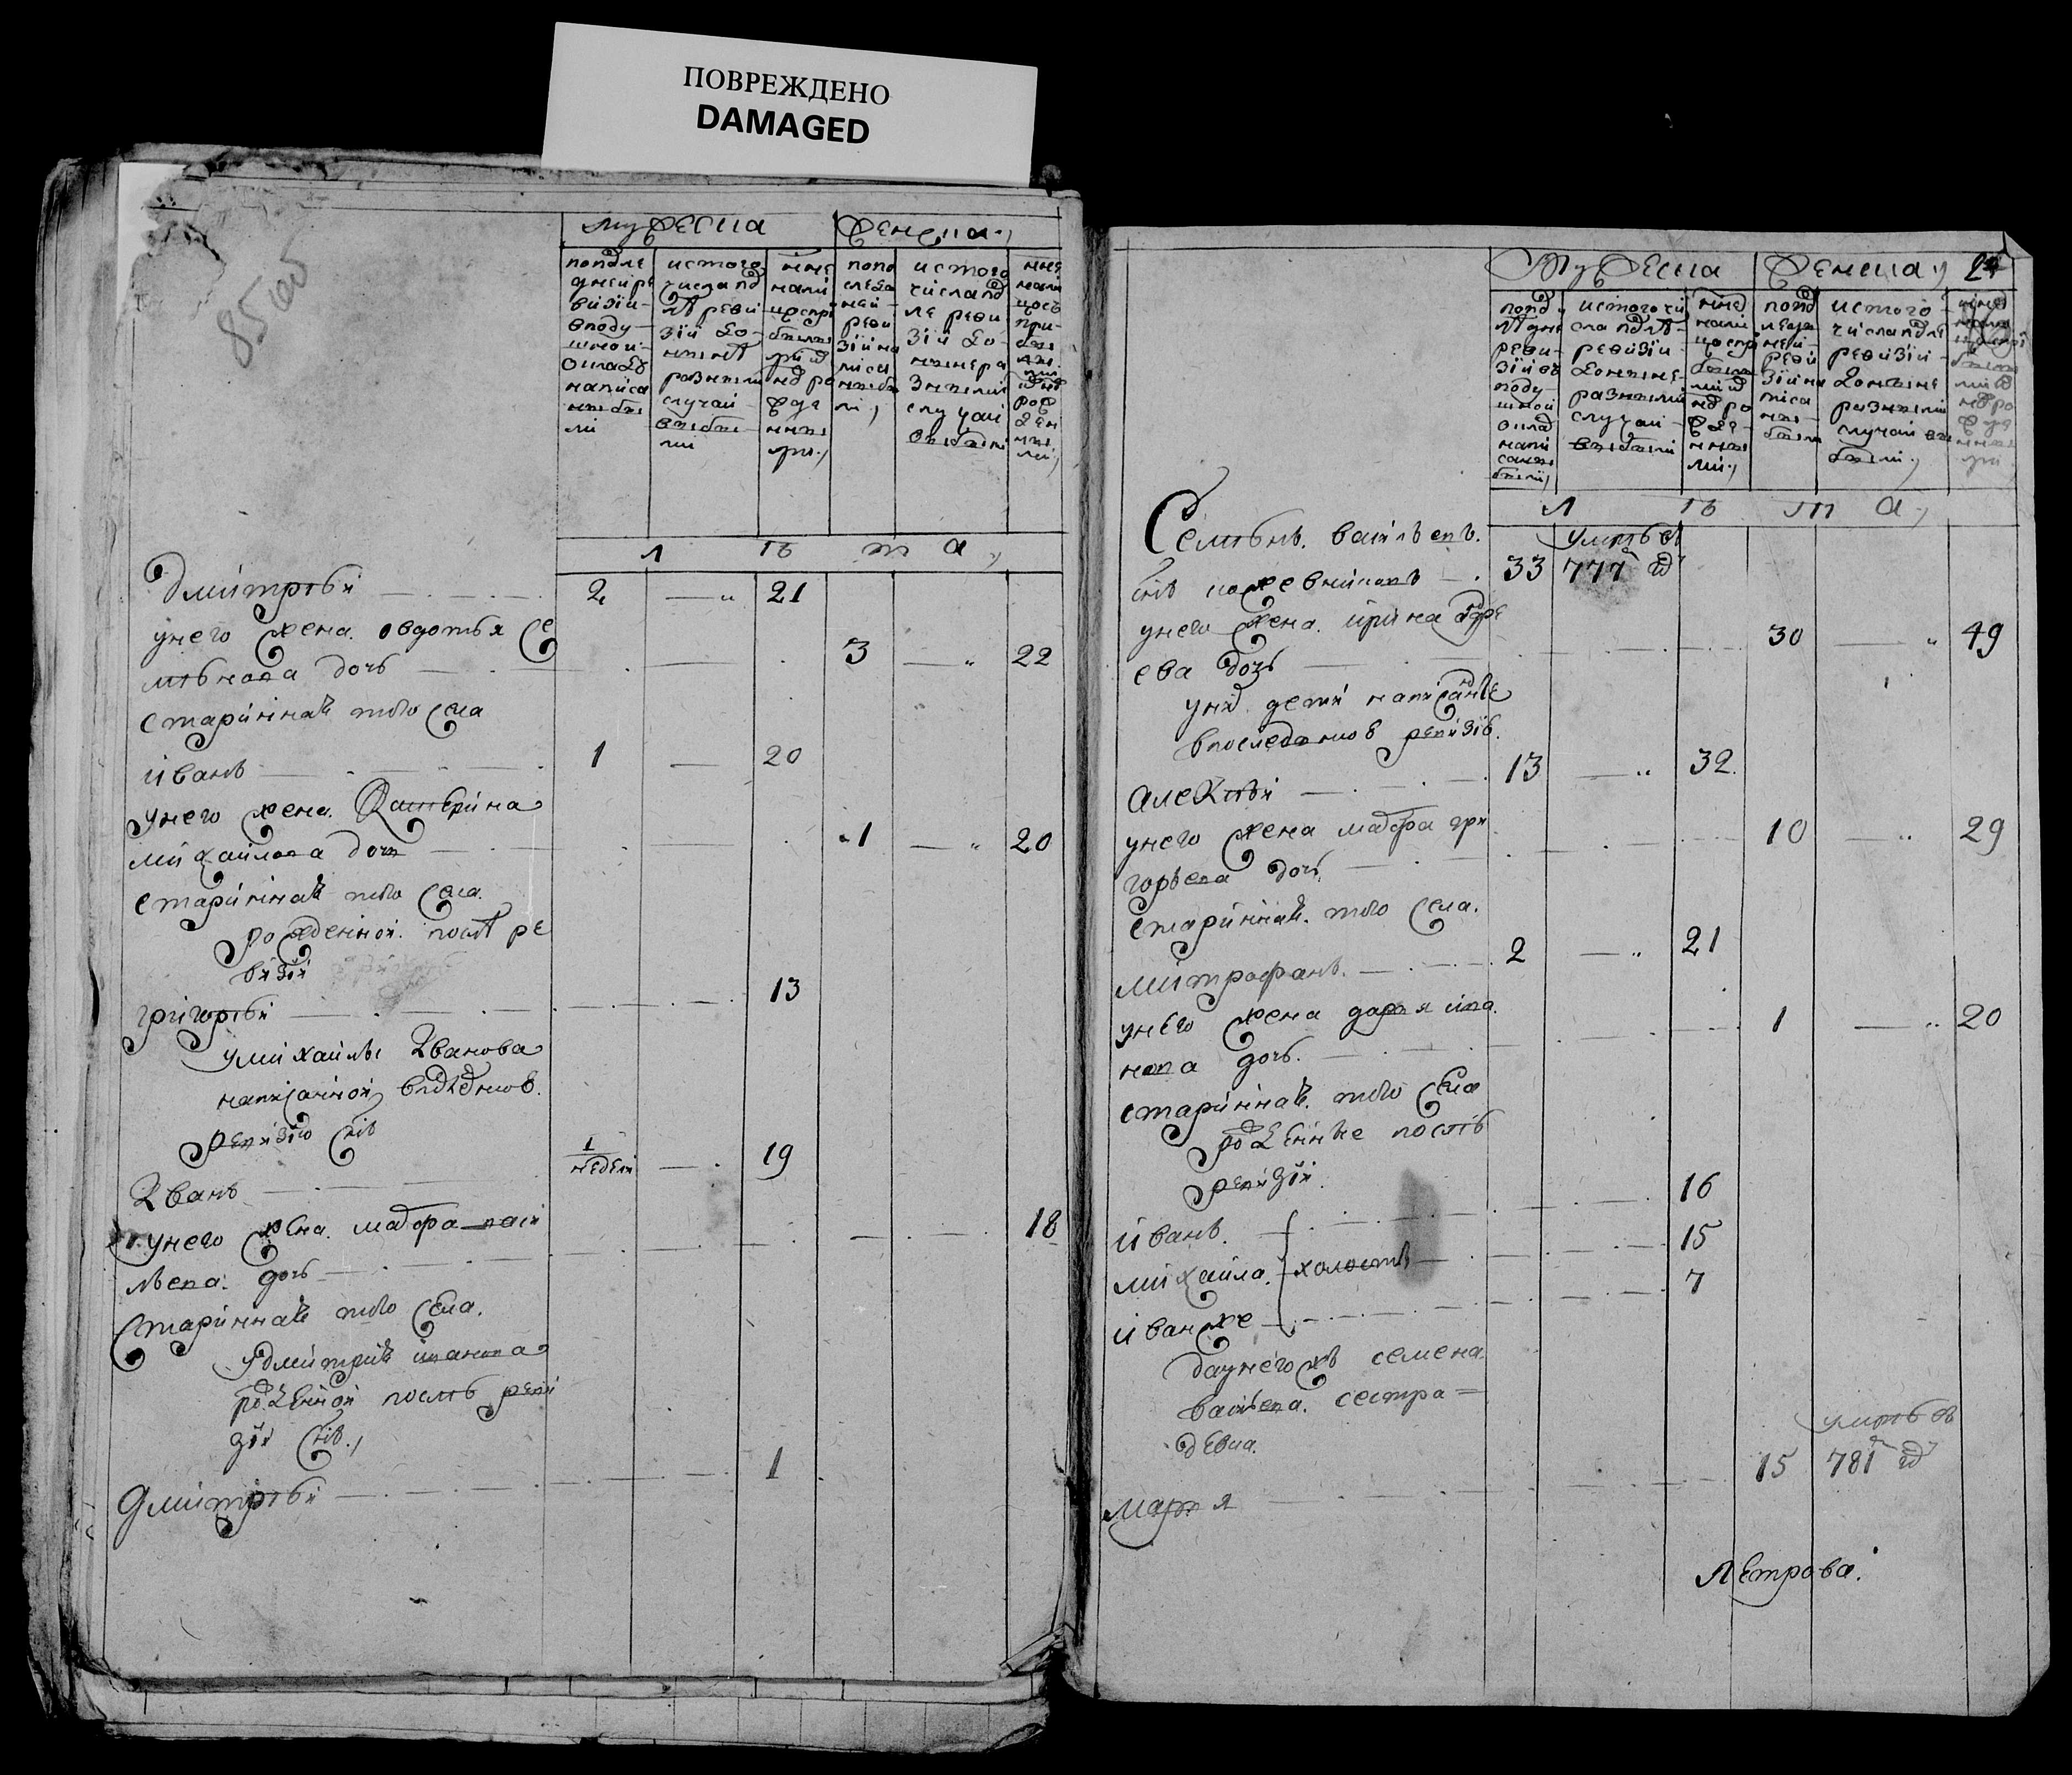 ПОВРЕЖДЕНО
DAMAGED
мужеска
женска
подле
дней ре
визіи
в поду
шной
окладъ
написа
ны бы
ли
ис того
числа по
слѣ реви
зіи до
нынѣ
разными
случаи
выбы
ли
нынѣ
нали
цо съ при
былы
ми и
но ро
жде
нны
ми
по по
следн
ней
реви
зіи на
писа
ны бы
ли
ис того
числа по
сле реви
зіи до
ныне ра
зными
случаи
выбыли
ныне
нали
цосъ
при
был
ы
ми
и но
рож
ден
ны
ми
л ѣ т а
дмитрѣй 2 21
у него жена овдотья се
мѣнова дочь 3 22
стариннаѣ того села
иванъ 1 20
у него жена Катѣрина
михайлова дочь 1 20
стариннаѣ того села
рожденной послѣ ре
визіи
григорѣй 13
у михаилы Иванова
написанной в последнюю
ревизию снъ
Иванъ 1 недели 19
у него жена мавра васи
лѣева дочь 18
стариннаѣ того села
у дмитриѣ иванова
рожденной послѣ реви
зіи снъ
Дмитрѣй 1
мужеска
женска
24
по по
слѣдне
реви
зіи въ
поду
шной
оклад
напи
саны
были
ис того чи
сла послѣ
ревизіи
до ныне
разными
случаи
выбыли
ныне
нали
цо съ при
былы
ми и
но ро
жде
нны
ми
по по
следн
ней
реви
зіи на
писа
ны
были
ис того
числа послѣ
ревизіи
до ныне
разными
случаи вы
были
л ѣ т а
Семѣнъ васильевъ умрѣ въ
снъ кожевниковъ 33 777 м год
у него жена ирина андре
ева дочь 30 49
у них дети написанные
в последнюю ревизію
алеѯѣй 13 32
у него жена мавра гри
горьева дочь 10 29
стариннаѣ того села
митрофанъ 2 21
у него жена дарья ива
нова дочь 1 20
стариннаѣ того села
рожденные послѣ
ревизіи
иванъ 16
михаила холосты 15
иван же 7
да у него жъ семена
васильева сестра
девка умрѣ въ
марья 15 781 м год
Петрова